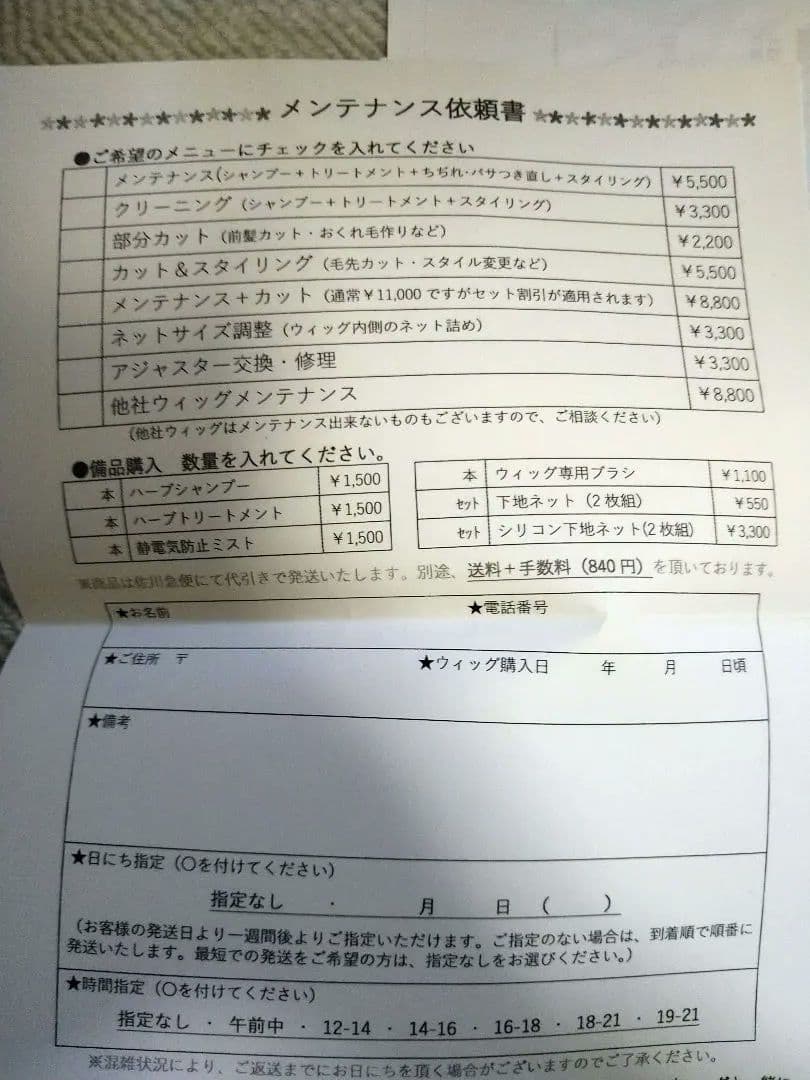 ★★★★★★★★★★★★★★ メンテナンス依頼書 ★★★★★★★★★★★★★★
●ご希望のメニューにチェックを入れてください
メンテナンス(シャンプー+トリートメント+ちぢれ・パサつき直し+スタイリング) ¥5,500
クリーニング (シャンプー+トリートメント+スタイリング) ¥3,300
部分カット (前髪カット・おくれ毛作りなど) ¥2,200
カット&スタイリング (毛先カット・スタイル変更など) ¥5,500
メンテナンス+カット (通常¥11,000ですがセット割引が適用されます) ¥8,800
ネットサイズ調整 (ウィッグ内側のネット詰め) ¥3,300
アジャスター交換・修理 ¥3,300
他社ウィッグメンテナンス ¥8,800
(他社ウィッグはメンテナンス出来ないものもございますので、ご相談ください)
●備品購入 数量を入れてください。
本 ハーブシャンプー ¥1,500
本 ハーブトリートメント ¥1,500
本 静電気防止ミスト ¥1,500
本 ウィッグ専用ブラシ ¥1,100
セット 下地ネット (2枚組) ¥550
セット シリコン下地ネット(2枚組) ¥3,300
※商品は佐川急便にて代引きで発送いたします。別途、送料+手数料(840円)を頂いております。
★お名前 ★電話番号
★ご住所 〒 ★ウィッグ購入日 年 月 日頃
★備考
★日にち指定(○を付けてください)
指定なし ・ 月 日 ( )
(お客様の発送日より一週間後よりご指定いただけます。ご指定のない場合は、到着順で順番に
発送いたします。最短での発送をご希望の方は、指定なしをお選びください。)
★時間指定(○を付けてください)
指定なし ・ 午前中 ・ 12-14 ・ 14-16 ・ 16-18 ・ 18-21 ・ 19-21
※混雑状況により、ご返送までにお日にちを頂く場合がございますのでご了承ください。